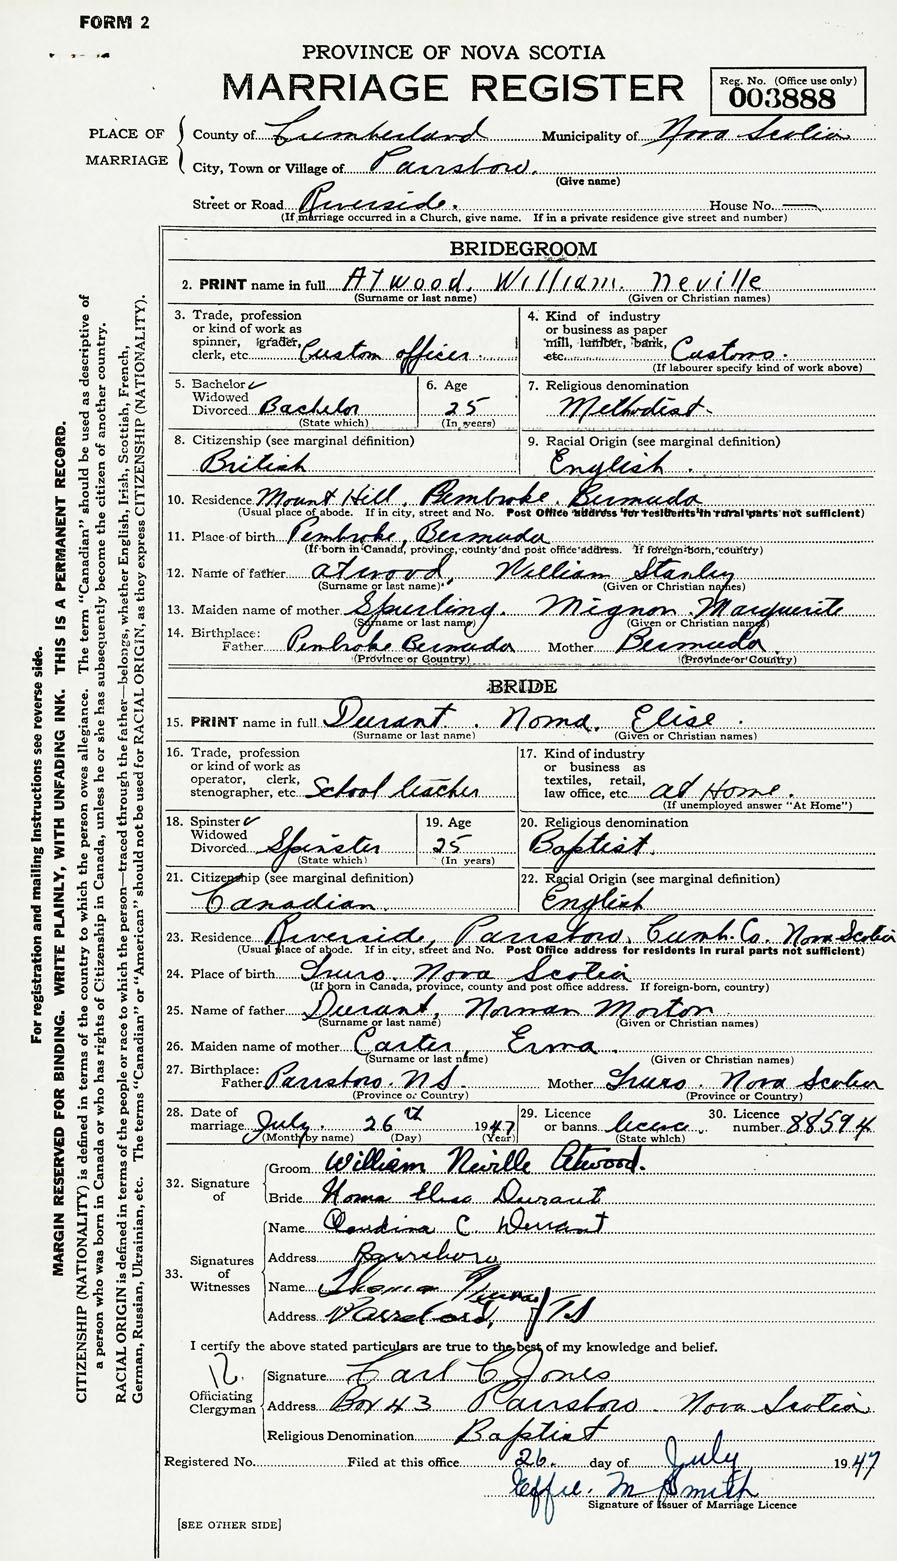 FORM 2
PROVINCE OF NOVA SCOTIA
MARRIAGE REGISTER
Reg. No. (Office use only)
003888
PLACE OF MARRIAGE
County of Cumberland Municipality of Nova Scotia
City, Town or Village of Parrsboro.
(Give name)
Street or Road Riverside. House No. —
(If marriage occurred in a Church, give name. If in a private residence give street and number)
BRIDEGROOM
2. PRINT name in full Atwood. William. Neville
(Surname or last name) (Given or Christian names)
3. Trade, profession or kind of work as spinner, grader, clerk, etc. Custom officer
4. Kind of industry or business as paper mill, lumber, bank, etc. Customs.
(If labourer specify kind of work above)
5. Bachelor ✓ Widowed Divorced Bachelor
(State which)
6. Age 25
(In years)
7. Religious denomination Methodist.
8. Citizenship (see marginal definition) British
9. Racial Origin (see marginal definition) English.
10. Residence Mount Hill, Pembroke. Bermuda
(Usual place of abode. If in city, street and No. Post Office address for residents in rural parts not sufficient)
11. Place of birth Pembroke, Bermuda
(If born in Canada, province, county and post office address. If foreign-born, country)
12. Name of father Atwood, William Stanley
(Surname or last name) (Given or Christian names)
13. Maiden name of mother Spurling. Mignon Marguerite
(Surname or last name) (Given or Christian names)
14. Birthplace: Father Pembroke Bermuda Mother Bermuda.
(Province or Country) (Province or Country)
BRIDE
15. PRINT name in full Durant. Noma. Elise.
(Surname or last name) (Given or Christian names)
16. Trade, profession or kind of work as operator, clerk, stenographer, etc. School teacher
17. Kind of industry or business as textiles, retail, law office, etc. at Home.
(If unemployed answer "At Home")
18. Spinster ✓ Widowed Divorced Spinster
(State which)
19. Age 25
(In years)
20. Religious denomination Baptist.
21. Citizenship (see marginal definition) Canadian.
22. Racial Origin (see marginal definition) English
23. Residence Riverside, Parrsboro, Cumb. Co. Nova Scotia
(Usual place of abode. If in city, street and No. Post Office address for residents in rural parts not sufficient)
24. Place of birth Truro. Nova Scotia
(If born in Canada, province, county and post office address. If foreign-born, country)
25. Name of father Durant, Norman Morton
(Surname or last name) (Given or Christian names)
26. Maiden name of mother Carter, Erma.
(Surname or last name) (Given or Christian names)
27. Birthplace: Father Parrsboro. N.S. Mother Truro. Nova Scotia
(Province or Country) (Province or Country)
28. Date of marriage July. 26th 1947
(Month by name) (Day) (Year)
29. Licence or banns licence
(State which)
30. Licence number 88594
32. Signature of
Groom William Neville Atwood.
Bride Noma Elise Durant
33. Signatures of Witnesses
Name Claudina C. Durrant
Address Parrsboro
Name Thomas
Address Parrsboro, N.S
I certify the above stated particulars are true to the best of my knowledge and belief.
12
Officiating Clergyman
Signature Carl C Jones
Address Box 43 Parrsboro. Nova Scotia
Religious Denomination Baptist
Registered No. Filed at this office 26. day of July 1947
Effie. M Smith
Signature of Issuer of Marriage Licence
[SEE OTHER SIDE]
For registration and mailing instructions see reverse side.
MARGIN RESERVED FOR BINDING. WRITE PLAINLY, WITH UNFADING INK. THIS IS A PERMANENT RECORD.
CITIZENSHIP (NATIONALITY) is defined in terms of the country to which the person owes allegiance. The term "Canadian" should be used as descriptive of
a person who was born in Canada or who has rights of Citizenship in Canada, unless he or she has subsequently become the citizen of another country.
RACIAL ORIGIN is defined in terms of the people or race to which the person—traced through the father—belongs, whether English, Irish, Scottish, French,
German, Russian, Ukrainian, etc. The terms "Canadian" or "American" should not be used for RACIAL ORIGIN, as they express CITIZENSHIP (NATIONALITY).